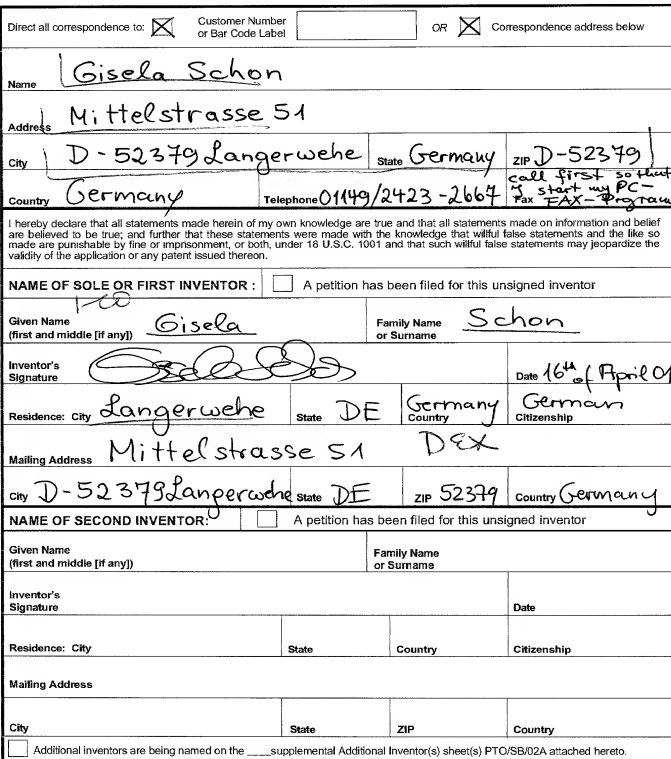 Direct all correspondence to: Customer Number or Bar Code Label OR Correspondence address below
Name Gisela Schon
Address Mittelstrasse 51
City D-52379 Langerwehe State Germany ZIP D-52379
Country Germany Telephone 01149/2423-2667 Fax call first so that I start my PC-FAX-Program
I hereby declare that all statements made herein of my own knowledge are true and that all statements made on information and belief
are believed to be true; and further that these statements were made with the knowledge that willful false statements and the like so
made are punishable by fine or imprisonment, or both, under 18 U.S.C. 1001 and that such willful false statements may jeopardize the
validity of the application or any patent issued thereon.
NAME OF SOLE OR FIRST INVENTOR : A petition has been filed for this unsigned inventor
1-00
Given Name (first and middle [if any]) Gisela Family Name or Surname Schon
Inventor's Signature Date 16th of April 01
Residence: City Langerwehe State DE Country Germany Citizenship German
Mailing Address Mittelstrasse 51 DEX
City D-52379 Langerwehe State DE ZIP 52379 Country Germany
NAME OF SECOND INVENTOR: A petition has been filed for this unsigned inventor
Given Name (first and middle [if any]) Family Name or Surname
Inventor's Signature Date
Residence: City State Country Citizenship
Mailing Address
City State ZIP Country
Additional inventors are being named on the ____supplemental Additional Inventor(s) sheet(s) PTO/SB/02A attached hereto.